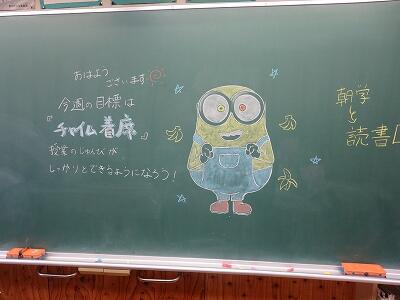 おはよう
ございます
今週の目標は
『チャイム着席』
授業のじゅんびが
しっかりとできるようになろう!
朝学
と
読書